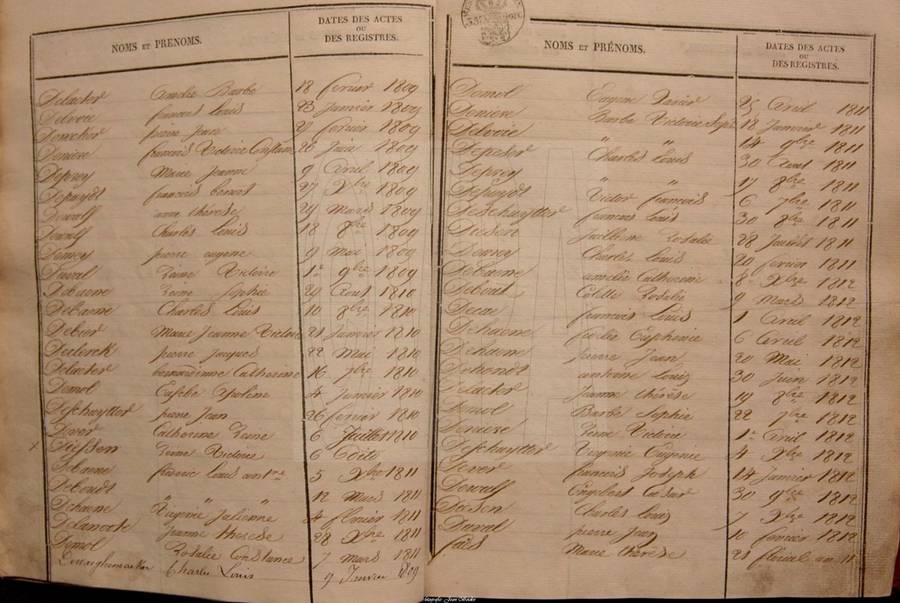 NOMS ET PRENOMS. DATES DES ACTES OU DES REGISTRES.
Delacter Amelie Barbe 18 fevrier 1809
Delvoie francois Louis 23 Janvier 1809
Demeter pierre Jean 27 fevrier 1809
Deniere francois Victoire Constant 20 Juin 1809
Deprey Marie Jeanne 9 Avril 1809
Depuydt francois benoit 27 Xbre 1809
Dewulf anne thérèse 29 Mars 1809
Dewulf Charles Louis 18 8bre 1809
Demey pierre eugene 9 Mai 1809
Duval Reine Victoire 1er 9bre 1809
Debaene Reine Sophie 29 Aout 1810
Debaene Charles Louis 10 8bre 1810
Dever Marie Jeanne Victoire 21 Janvier 1810
Declerck pierre Jacques 22 Mai 1810
Delacter bernardinne Catherine 16 7bre 1810
Demol Eusebe Apoline 4 Janvier 1810
Deschuytter pierre Jean 26 fevrier 1810
Dever Catherine Reine 6 Juillet 1810
Diesson Reine Victoire 6
Debaene Louis 5 Xbre 1811
Deboudt 12 Mars 1811
Dehaene Eugenie Julienne 4 fevrier 1811
Delanoote Jeanne thérèse 28 Xbre 1811
Demol Rosalie Constance 7 mars 1811
Charles Louis 9 Janvier 1809
NOMS ET PRÉNOMS. DATES DES ACTES OU DES REGISTRES.
Demol Eugene Xavier 25 Avril 1811
Deniere Barbe Victoire 18 Janvier 1811
Delvoie " " 14 9bre 1811
Depecker Charles Louis 30 Aout 1811
Deprey " " 17 8bre 1811
Depuydt Victor francois 6 7bre 1811
Deschuytter francois Louis 30 8bre 1811
Diesson Guillaume Rosalie 28 1811
Demey Charles Louis 20 fevrier 1811
Debaene amelie Catherine 8 Xbre 1812
Debert Colette Rosalie 9 Mars 1812
francois Louis 1 Avril 1812
Dehaene Rosalie Euphenie 6 Avril 1812
Dehaene pierre Jean 20 Mai 1812
Dehondt antoine Louis 30 Juin 1812
Delacter Jeanne thérèse 19 8bre 1812
Demol Barbe Sophie 22 7bre 1812
Deniere Reine Victoire 1er Avril 1812
Deschuytter Virginie Eugenie 4 Xbre 1812
Dever francois Joseph 14 Janvier 1812
Dewulf Engelbert Cesar 30 9bre 1812
Charles Louis 7 Xbre 1812
Duval pierre Jean 10 fevrier 1812
Marie thérèse 21 floreal an 11